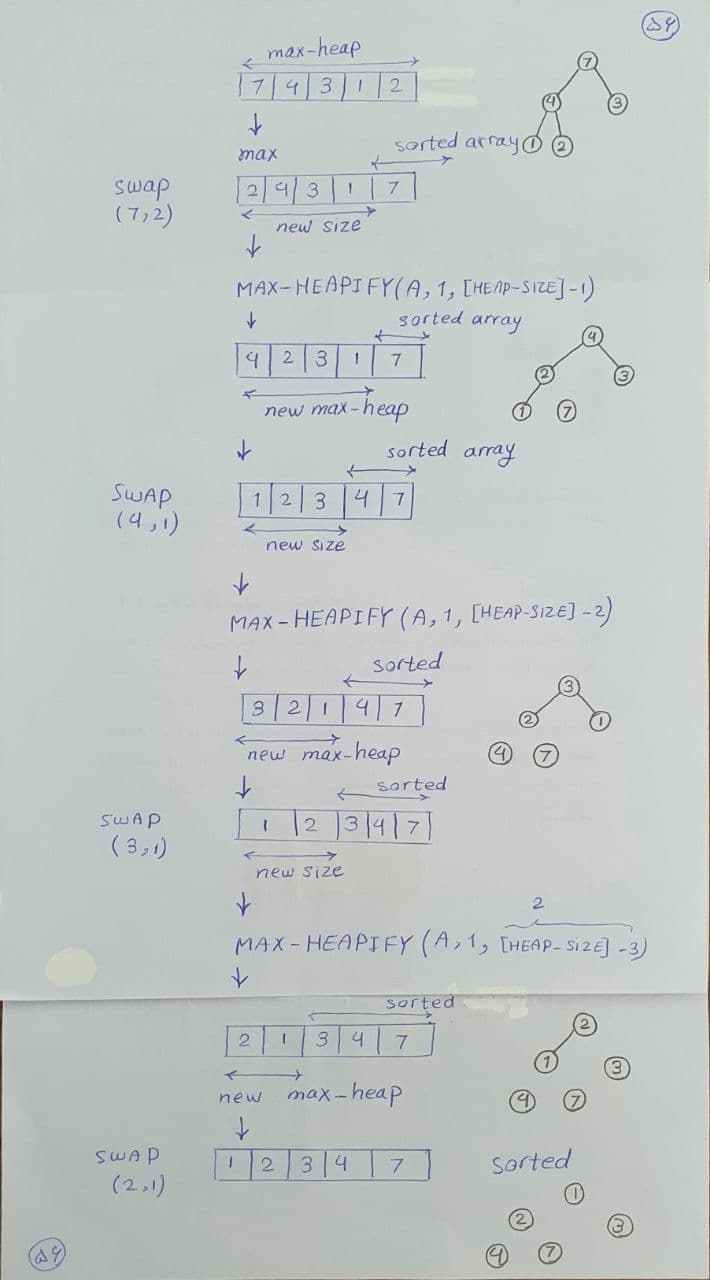 △४
max-heap
7 4 3 1 2
7
4 3
1 2
max
sorted array
swap
(7,2)
2 4 3 1 7
new size
MAX-HEAPIFY(A, 1, [HEAP-SIZE]-1)
sorted array
4 2 3 1 7
4
2 3
1 7
new max-heap
sorted array
SWAP
(4,1)
1 2 3 4 7
new size
MAX-HEAPIFY(A, 1, [HEAP-SIZE]-2)
sorted
3 2 1 4 7
3
2 1
4 7
new max-heap
sorted
SWAP
(3,1)
1 2 3 4 7
new size
2
MAX-HEAPIFY(A, 1, [HEAP-SIZE]-3)
sorted
2 1 3 4 7
2
1 3
4 7
new max-heap
SWAP
(2,1)
1 2 3 4 7
sorted
1
2 3
4 7